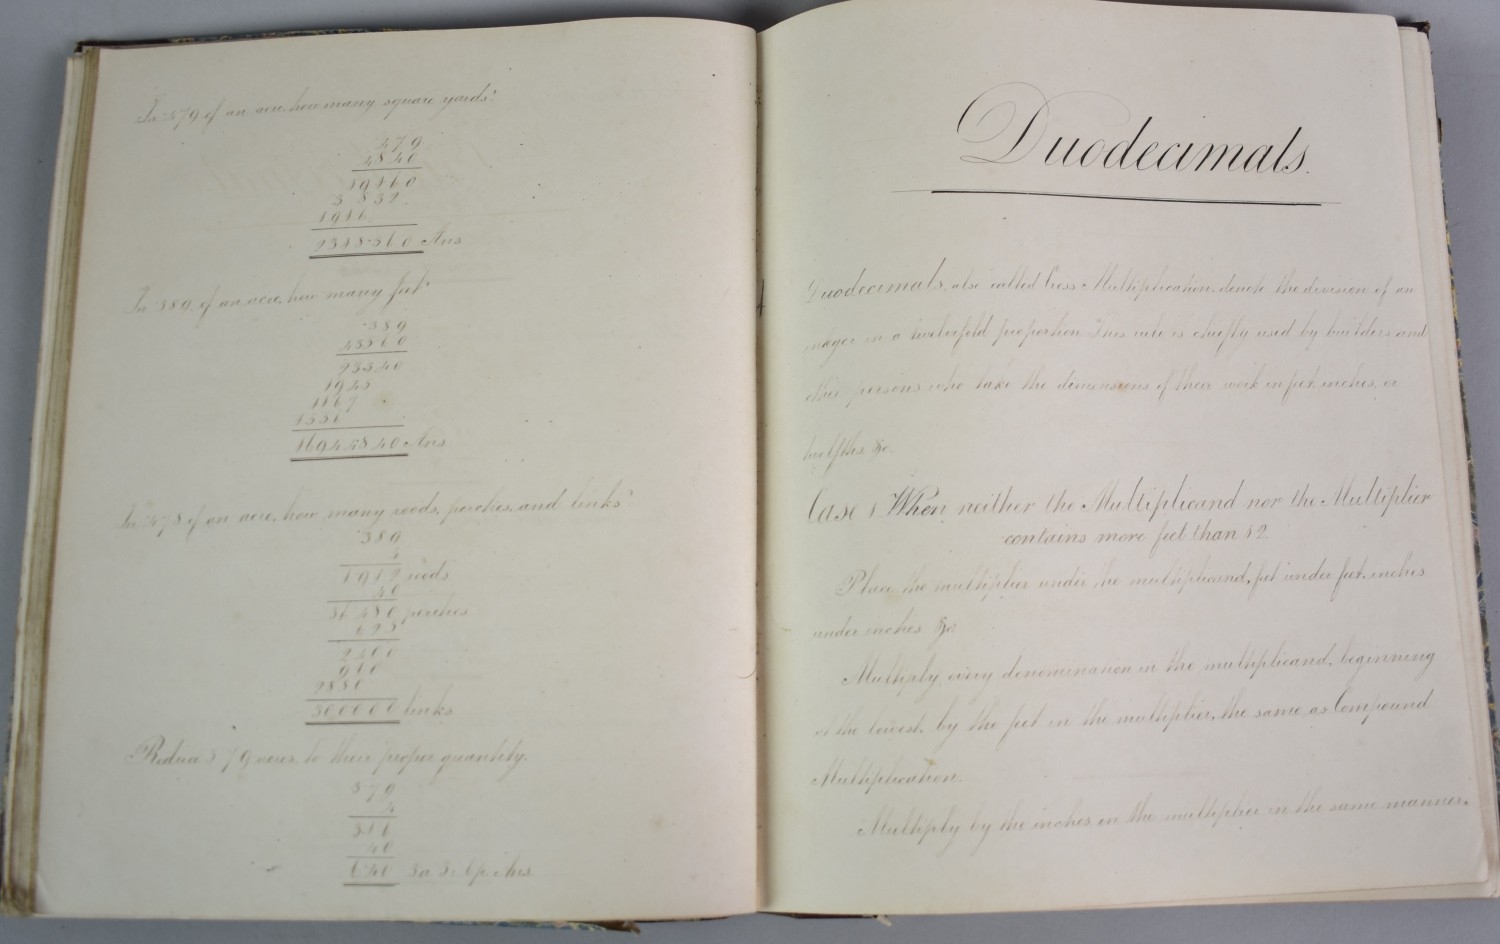 In ·479 of an acre, how many square yards?
·479
4840
19160
3 832
1916
2318·360 Ans
In ·389 of an acre, how many feet?
·389
43560
23340
1945
1167
1556
16944·840 Ans
In ·478 of an acre, how many roods, perches, and links?
4
1912 roods
40
36 480 perches
625
2400
960
2880
300000 links
Reduce 3 79 acres to their proper quantity.
3 79
4
316
40
6·40
Duodecimals.
Duodecimals, also called Cross Multiplication, denote the division of an
integer in a twelvefold proportion. This rule is chiefly used by builders and
other persons who take the dimensions of their work in feet, inches, or
twelfths, &c.
Case 1 When neither the Multiplicand nor the Multiplier
contains more feet than 12.
Place the multiplier under the multiplicand, feet under feet, inches
under inches &c
Multiply every denomination in the multiplicand, beginning
at the lowest, by the feet in the multiplier, the same as Compound
Multiplication.
Multiply by the inches in the multiplier in the same manner,